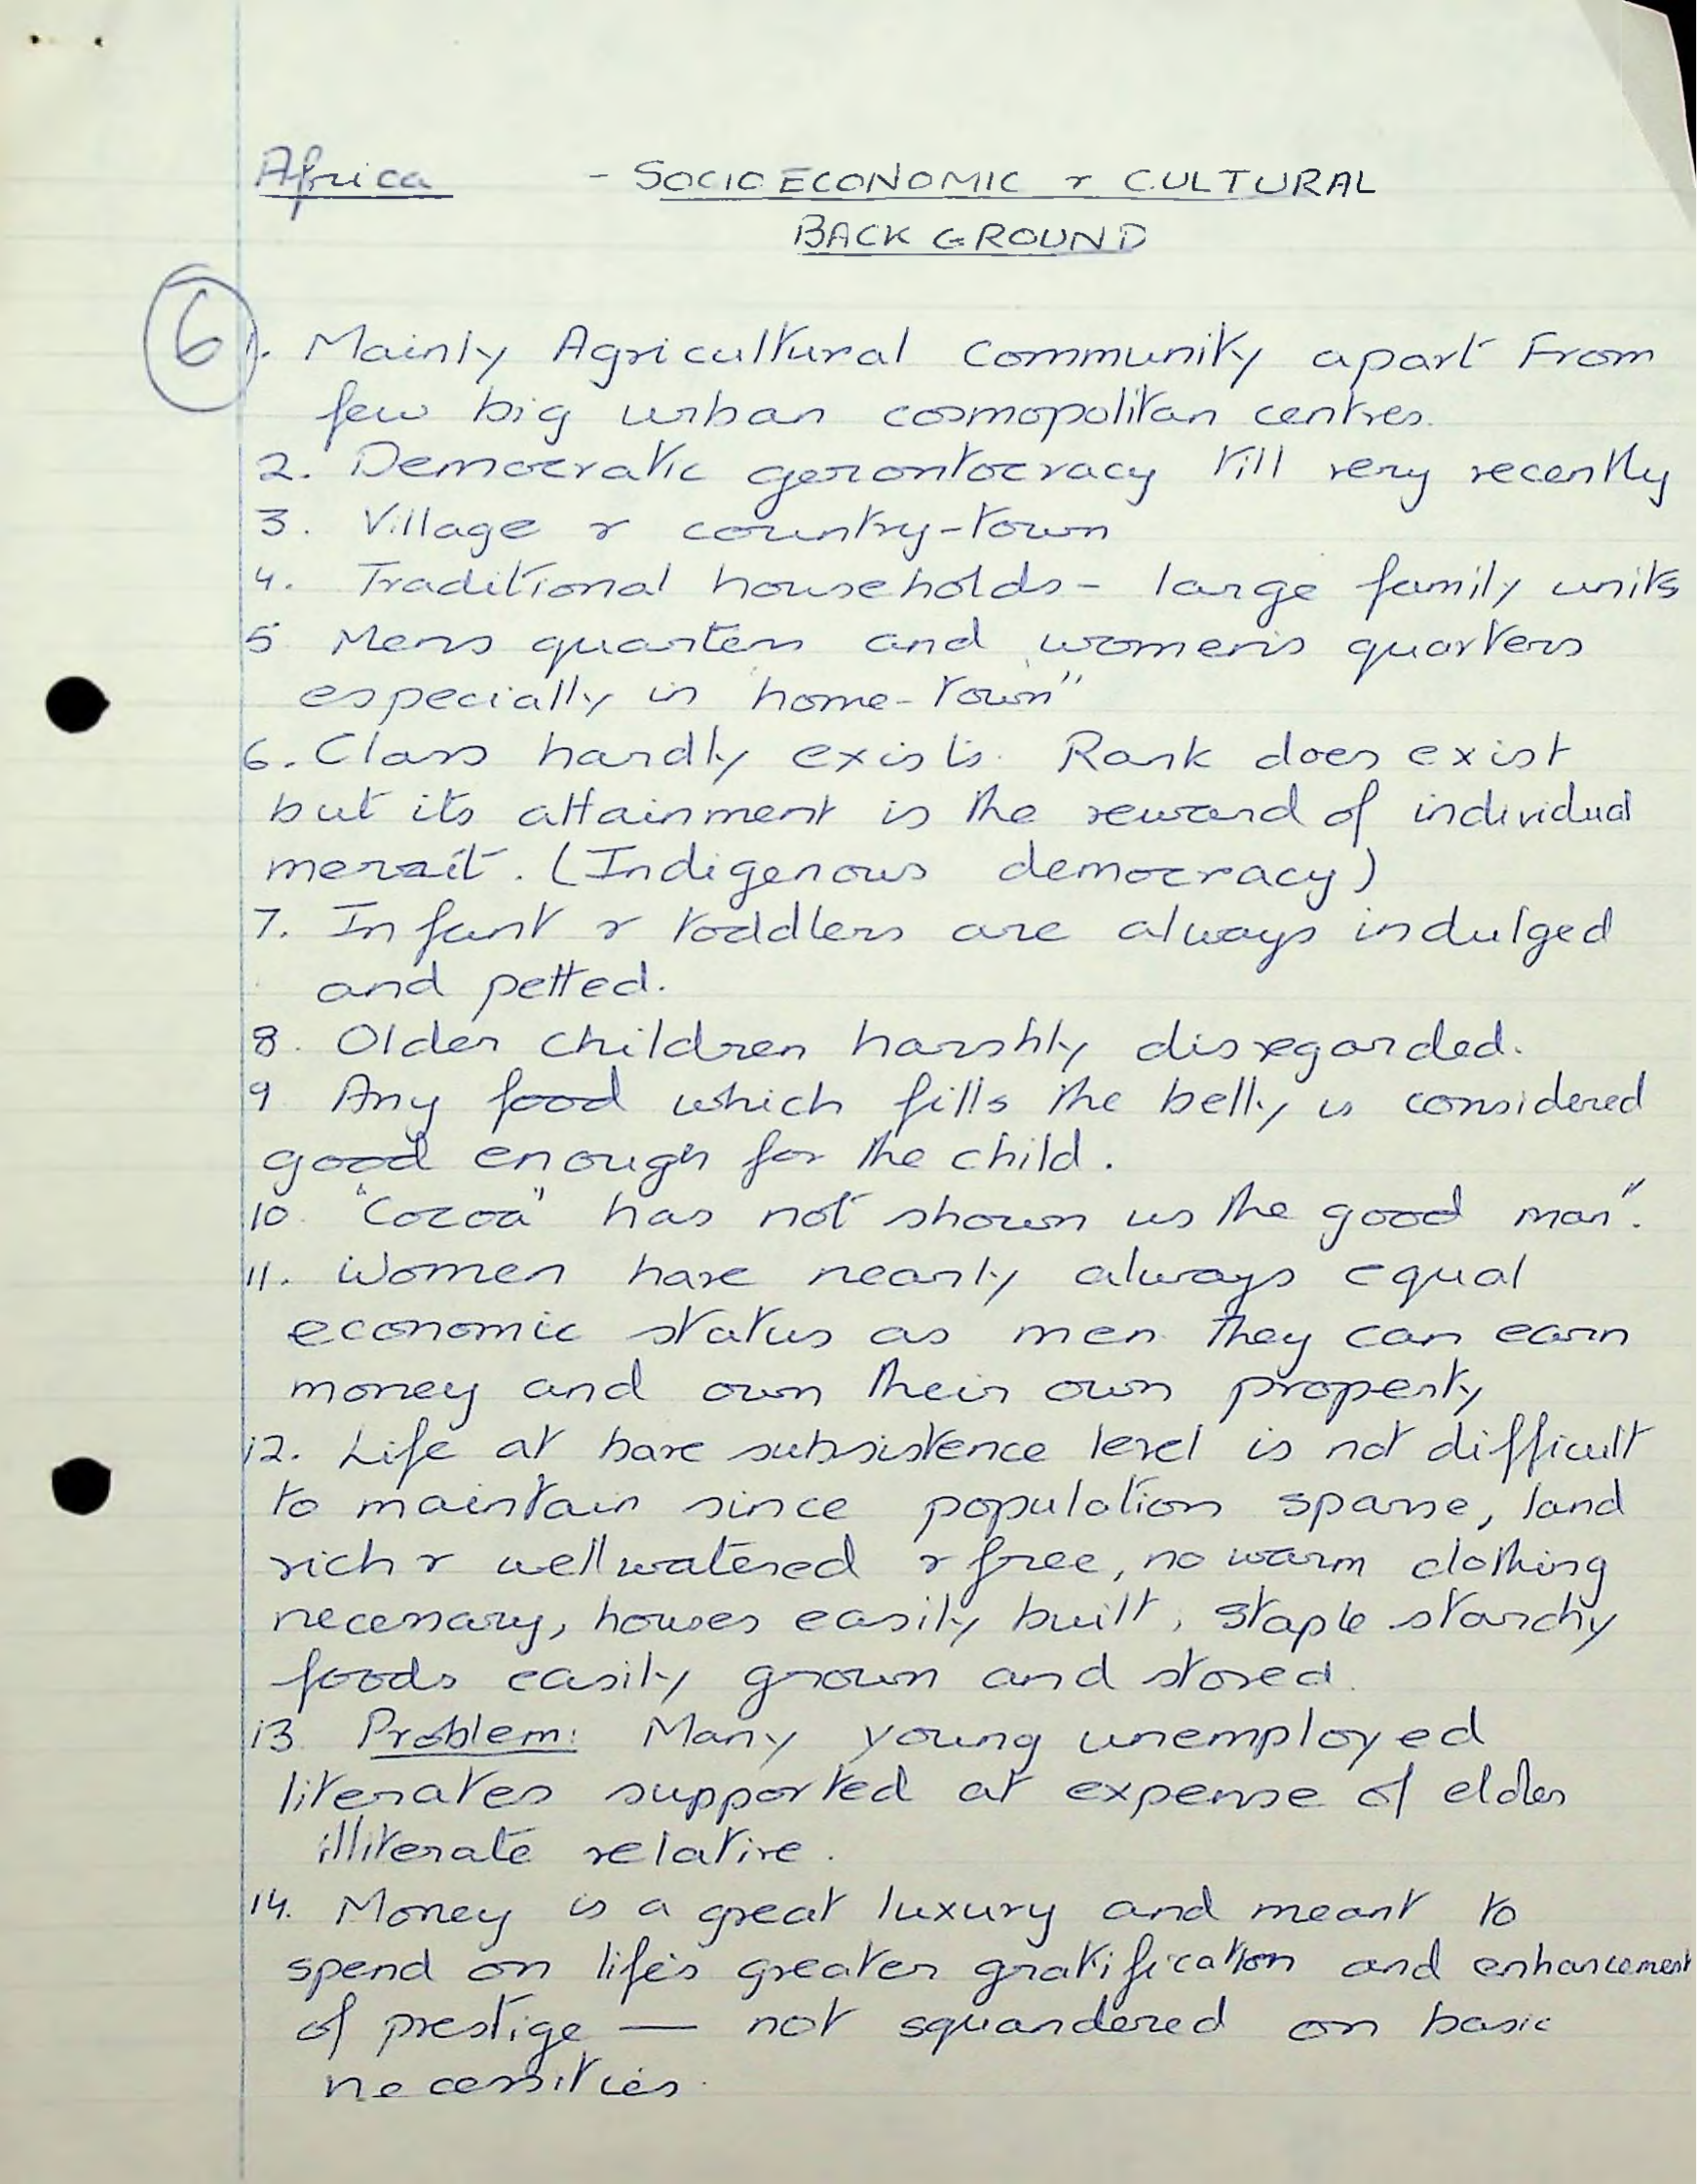 Africa - SOCIOECONOMIC & CULTURAL
BACKGROUND
6
1. Mainly Agricultural Community apart From
few big urban cosmopolitan centres.
2. Democratic gerontocracy till very recently
3. Village & country-town
4. Traditional households - large family units
5 Mens quarters and women's quarters
especially in "home-town"
6. Class hardly exists. Rank does exist
but its attainment is the reward of individual
merit. (Indigenous democracy)
7. Infant & toddlers are always indulged
and petted.
8. Older children harshly disregarded.
9 Any food which fills the belly is considered
good enough for the child.
10. "Cocoa" has not shown us the good man".
11. Women have nearly always equal
economic status as men they can earn
money and own their own property
12. Life at bare subsistence level is not difficult
to maintain since population sparse, land
rich & well watered & free, no warm clothing
necessary, houses easily built, staple starchy
foods easily grown and stored.
13. Problem: Many young unemployed
literates supported at expense of elder
illiterate relative.
14. Money is a great luxury and meant to
spend on life's greater gratification and enhancement
of prestige — not squandered on basic
necessities.